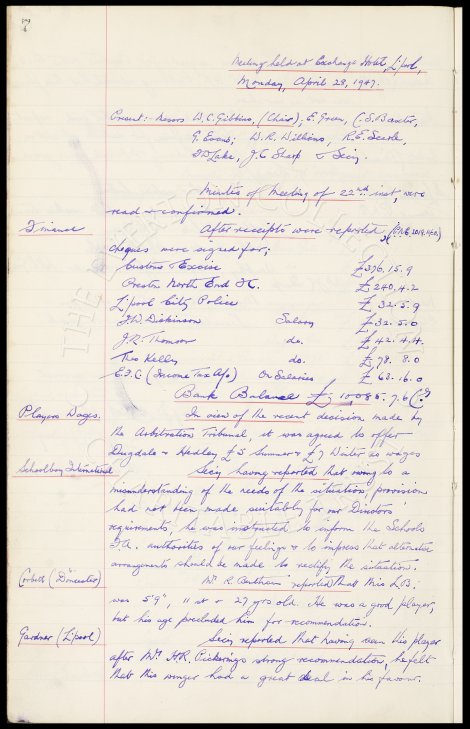 Meeting held at Exchange Hotel, L'pool,
Monday, April 28, 1947.
Present:- Messrs W.C. Gibbins, (Chair), E. Green, C.S. Baxter,
G. Evans, W.R. Williams, R.E. Searle,
J.C. Sharp & Secy.
Minutes of Meeting of 22nd inst, were
read & confirmed.
Finance
After receipts were reported
cheques were signed for;
Customs & Excise £376.15.9
Preston North End F.C. £240.4.2
L'pool City Police £32.5.9
J.W. Dickinson Salary £32.5.0
J.R. Thomson do. £42.4.4.
Theo Kelly do. £78.8.0
E.F.C (Income Tax A/c) On Salaries £63.16.0
Bank Balance £10,085.7.6
Players Wages.
In view of the recent decision made by
the Arbitration Tribunal, it was agreed to offer
Dugdale & Hedley £5 Summer & £7 Winter as wages
Schoolboy International
Secy having reported that owing to a
misunderstanding of the needs of the situation, provision
had not been made suitably for our Directors'
requirements, he was instructed to inform the Schools
F.A. authorities of our feelings & to impress that alternative
arrangements should be made to rectify the situation.
Corbett ("Doncaster)
reported that this L.B.
was 5'9", 11 st & 27 yrs old. He was a good player,
but his age precluded him for recommendation.
Gardner (L'pool)
Secy reported that having seen this player
after Mr H.R. Pickering's strong recommendation, he felt
that this winger had a great deal in his favour.